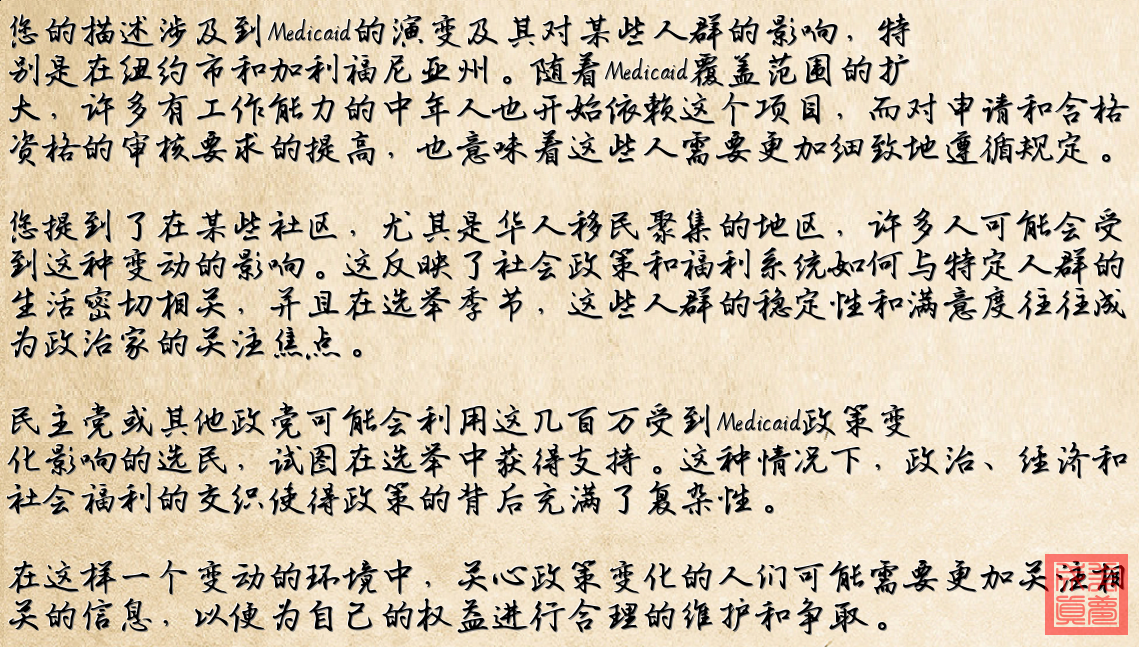 您的描述涉及到Medicaid的演变及其对某些人群的影响，特
别是在纽约市和加利福尼亚州。随着Medicaid覆盖范围的扩
大，许多有工作能力的中年人也开始依赖这个项目，而对申请和合格
资格的审核要求的提高，也意味着这些人需要更加细致地遵循规定。
您提到了在某些社区，尤其是华人移民聚集的地区，许多人可能会受
到这种变动的影响。这反映了社会政策和福利系统如何与特定人群的
生活密切相关，并且在选举季节，这些人群的稳定性和满意度往往成
为政治家的关注焦点。
民主党或其他政党可能会利用这几百万受到Medicaid政策变
化影响的选民，试图在选举中获得支持。这种情况下，政治、经济和
社会福利的交织使得政策的背后充满了复杂性。
在这样一个变动的环境中，关心政策变化的人们可能需要更加关注相
关的信息，以便为自己的权益进行合理的维护和争取。